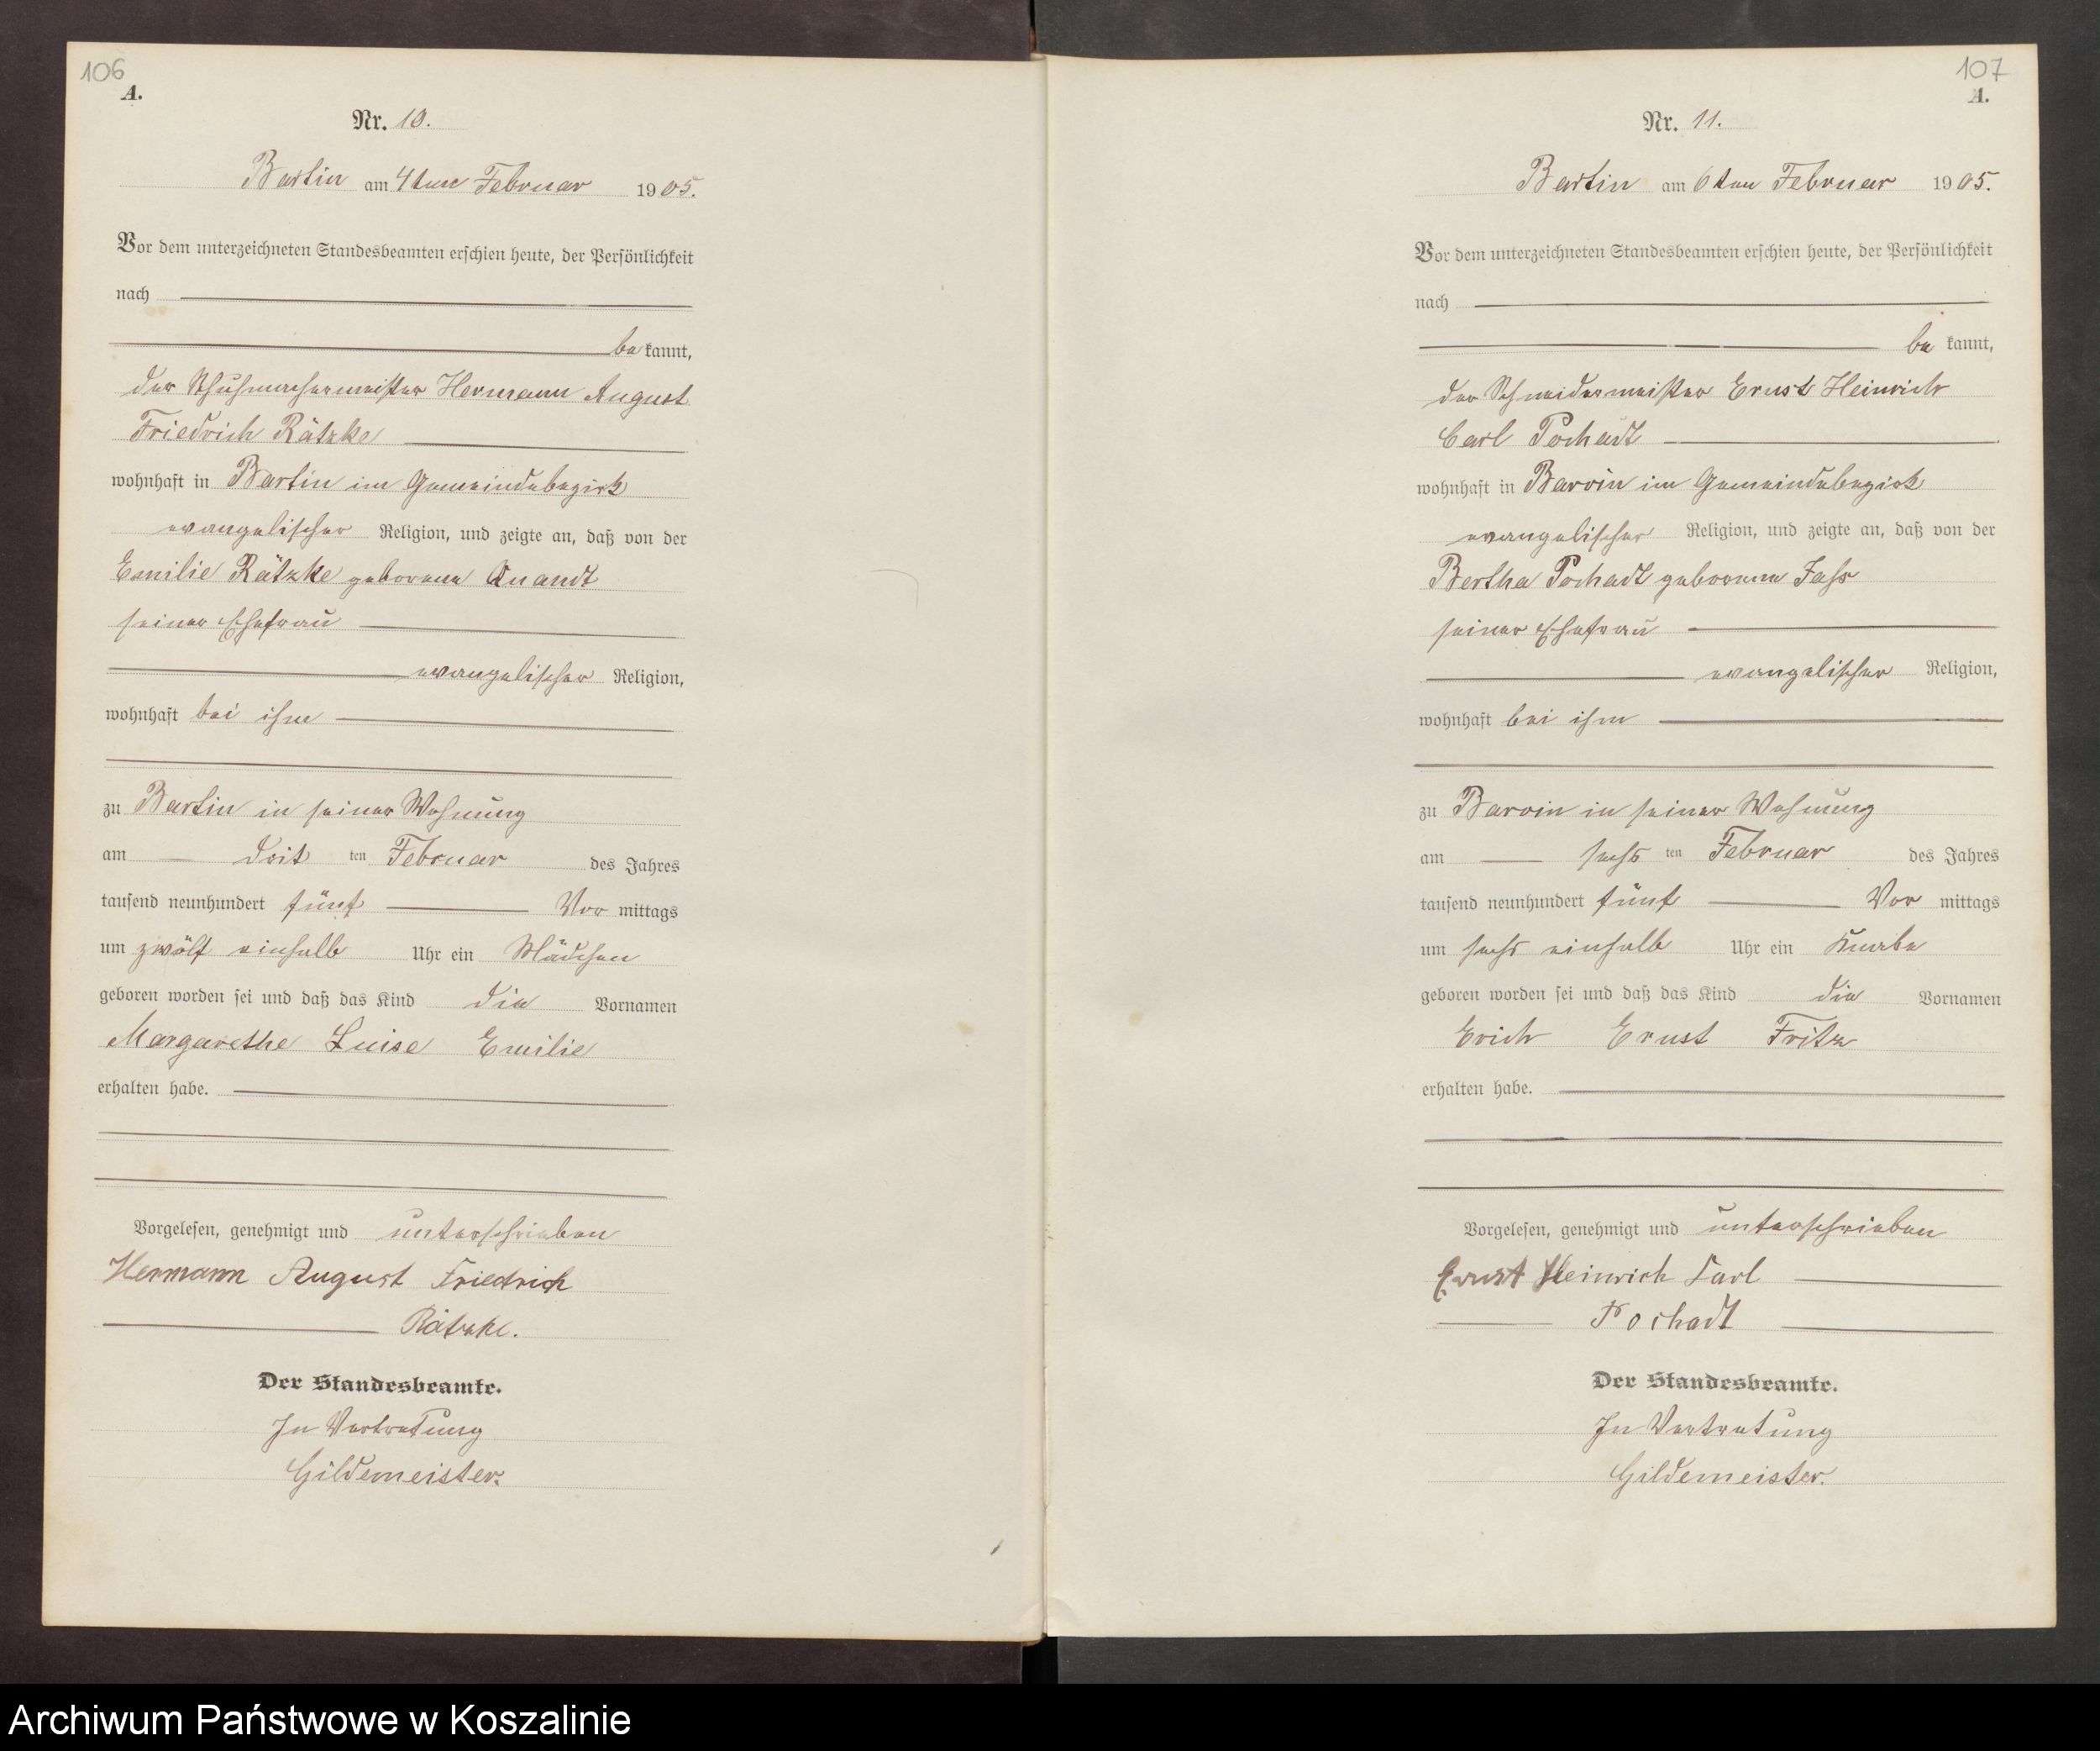 106
A.
Nr. 10.
Bartin am 4ten Februar 1905.
Vor dem unterzeichneten Standesbeamten erschien heute, der Persönlichkeit
nach
be kannt,
der Schuhmachermeister Hermann August
Friedrich Rätzke
wohnhaft in Bartin im Gemeindebezirk
evangelischer Religion, und zeigte an, daß von der
Emilie Rätzke geborene Quandt
seiner Ehefrau
evangelischer Religion,
wohnhaft bei ihm
zu Bartin in seiner Wohnung
am drit ten Februar des Jahres
tausend neunhundert fünf Vor mittags
um zwölf einhalb Uhr ein Mädchen
geboren worden sei und daß das Kind die Vornamen
Margarethe Luise Emilie
erhalten habe.
Vorgelesen, genehmigt und unterschrieben
Hermann August Friedrich
Rätzke.
Der Standesbeamte.
In Vertretung
Gildemeister.
107
A.
Nr. 11.
Bartin am 6ten Februar 1905.
Vor dem unterzeichneten Standesbeamten erschien heute, der Persönlichkeit
nach
be kannt,
der Schneidermeister Ernst Heinrich
Carl Pochadt
wohnhaft in Barvin im Gemeindebezirk
evangelischer Religion, und zeigte an, daß von der
Bertha Pochadt geborene Fass
seiner Ehefrau
evangelischer Religion,
wohnhaft bei ihm
zu Barvin in seiner Wohnung
am sechs ten Februar des Jahres
tausend neunhundert fünf Vor mittags
um sechs einhalb Uhr ein Knabe
geboren worden sei und daß das Kind die Vornamen
Erich Ernst Fritz
erhalten habe.
Vorgelesen, genehmigt und unterschrieben
Ernst Heinrich Carl
Pochadt
Der Standesbeamte.
In Vertretung
Gildemeister.
Archiwum Państwowe w Koszalinie